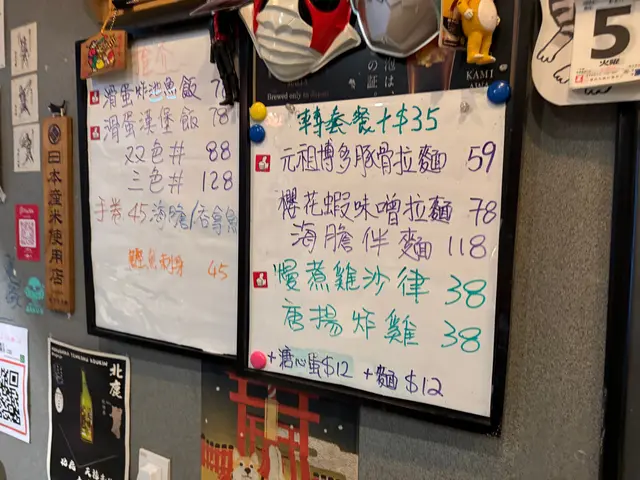 推介
滑蛋炸池魚飯 78
滑蛋漢堡飯 78
双色丼 88
三色丼 128
手卷 45 海膽/吞拿魚
鰹魚刺身 45
轉套餐 +$35
元祖博多豚骨拉麵 59
櫻花蝦味噌拉麵 78
海膽伴麵 118
慢煮雞沙律 38
唐揚炸雞 38
+溏心蛋$12 +麵 $12
日本産米使用店
北鹿
の証
KAMI
5
火曜